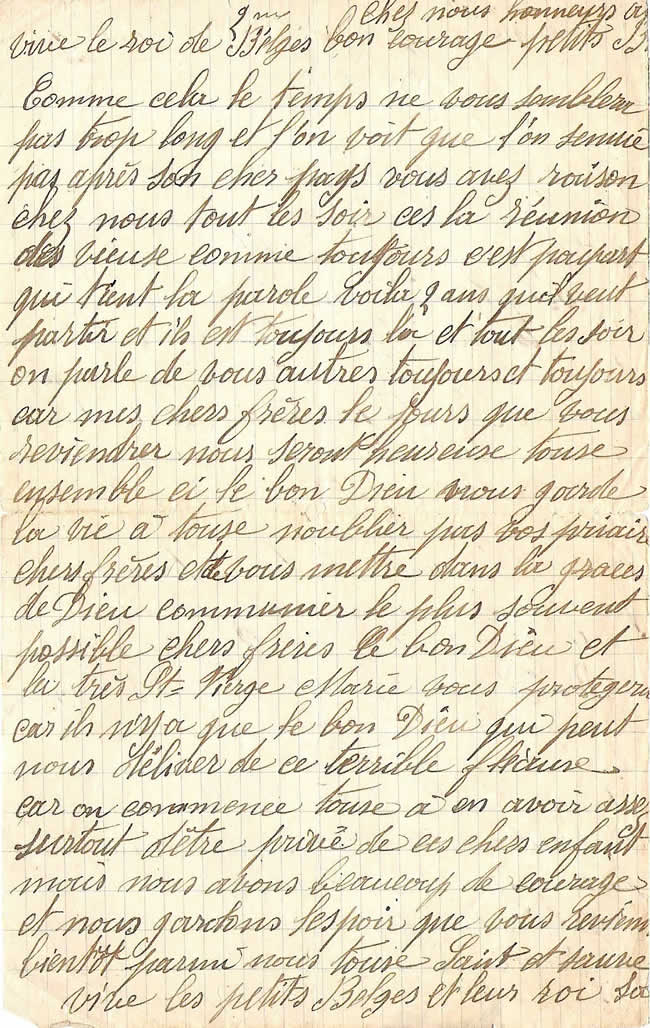 2me chez nous honneurs a
vive le roi de Belges bon courage petits B
Comme cela le temps ne vous semblera
pas trop long et l'on voit que l'on senuie
pas après son cher pays vous avez raison
chez nous tout les soir ces la réunion
des vieuse comme toujours c'est papart
qui tient la parole voila 2 ans qu'il veut
partir et ils est toujours là et tout les soir
on parle de vous autres toujours et toujours
car mes chers frères le jours que vous
reviendrer nous seront heureuse touse
ensemble ci le bon Dieu nous garde
la vie à touse n'oublier pas vos priair
chers frères et de vous mettre dans la graces
de Dieu communier le plus souvent
possible chers freres le bon Dieu et
la très St= Vierge Marie vous protegera
car ils n'y a que le bon Dieu qui peut
nous déliver de ce terrible fléause
car on commence touse à en avoir asse
surtout d'être privé de ces chers enfant
mais nous avons beaucoup de courage
et nous gardons l'espoir que vous revien
bientôt parmi nous touse Saint et sauve
vive les petits Belges et leur roi